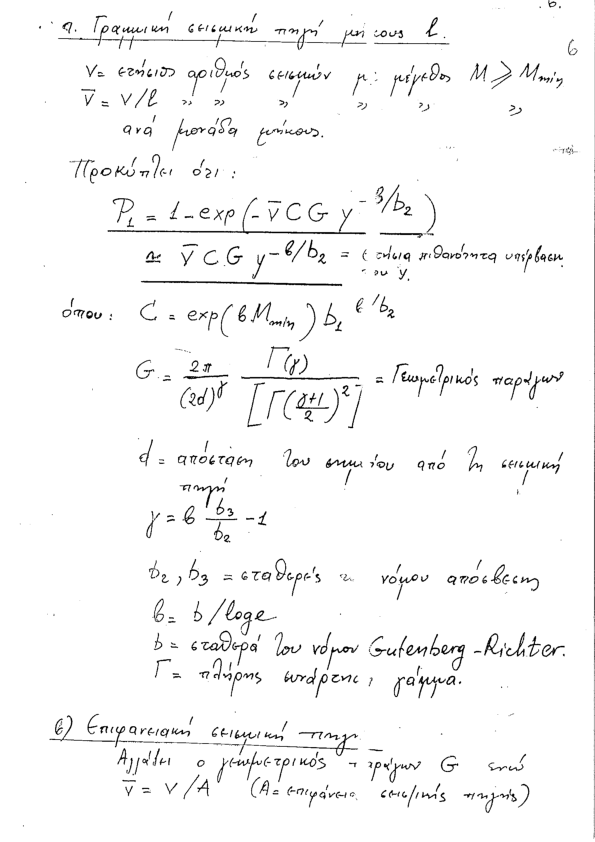 6
α. Γραμμική σεισμική πηγή μήκους l.
ν = ετήσιος αριθμός σεισμών με μέγεθος M ≥ Mmin
ν̅ = ν/l " " " " " "
ανά μονάδα μήκους.
Προκύπτει ότι:
P₁ = 1 - exp(-ν̅ C G y^(-β/b₂))
≃ ν̅ C G y^(-β/b₂) = ετήσια πιθανότητα υπέρβασης
του y.
όπου: C = exp(β Mmin) b₁^(β/b₂)
G = 2π/(2d)^γ Γ(γ)/[Γ((γ+1)/2)²] = Γεωμετρικός παράγων
d = απόσταση του σημείου από τη σεισμική
πηγή
γ = β b₃/b₂ - 1
b₂, b₃ = σταθερές νόμου απόσβεσης
β = b/loge
b = σταθερά του νόμου Gutenberg-Richter.
Γ = πλήρης συνάρτησις γάμμα.
β) Επιφανειακή σεισμική πηγή
Αλλάζει ο γεωμετρικός παράγων G ενώ
ν̅ = ν/A (A = επιφάνεια σεισμικής πηγής)